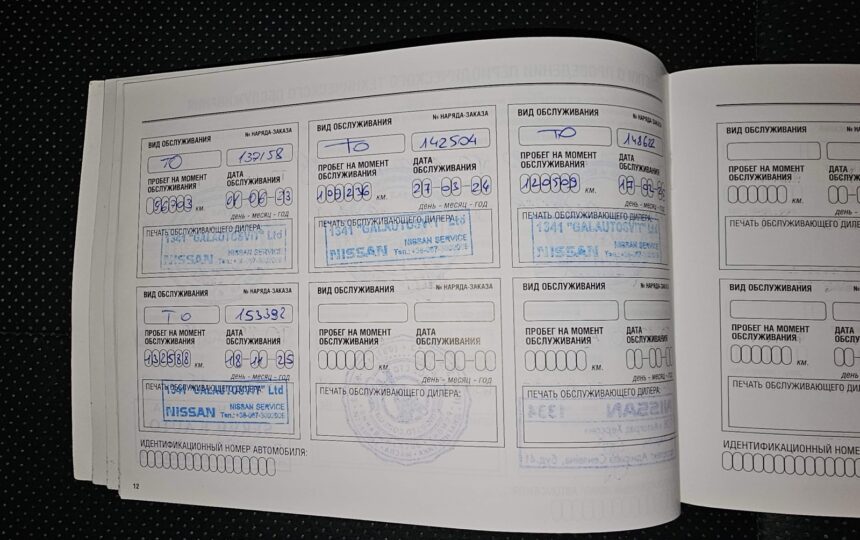 ВИД ОБСЛУЖИВАНИЯ № НАРЯДА-ЗАКАЗА
ТО 137158
ПРОБЕГ НА МОМЕНТ ОБСЛУЖИВАНИЯ ДАТА ОБСЛУЖИВАНИЯ
км.
день - месяц - год
ПЕЧАТЬ ОБСЛУЖИВАЮЩЕГО ДИЛЕРА:
1341 "GALAUTOSVIT" Ltd
NISSAN NISSAN SERVICE
ВИД ОБСЛУЖИВАНИЯ № НАРЯДА-ЗАКАЗА
ТО 142504
ПРОБЕГ НА МОМЕНТ ОБСЛУЖИВАНИЯ ДАТА ОБСЛУЖИВАНИЯ
109236 км. 27-03-24
день - месяц - год
ПЕЧАТЬ ОБСЛУЖИВАЮЩЕГО ДИЛЕРА:
1341 "GALAUTOSVIT" Ltd
NISSAN NISSAN SERVICE
ВИД ОБСЛУЖИВАНИЯ № НАРЯДА-ЗАКАЗА
ТО 148622
ПРОБЕГ НА МОМЕНТ ОБСЛУЖИВАНИЯ ДАТА ОБСЛУЖИВАНИЯ
120509 км.
день - месяц - год
ПЕЧАТЬ ОБСЛУЖИВАЮЩЕГО ДИЛЕРА:
1341 "GALAUTOSVIT" Ltd
NISSAN NISSAN SERVICE
ВИД ОБСЛУЖИВАНИЯ № НАРЯДА-ЗАКАЗА
ТО 153392
ПРОБЕГ НА МОМЕНТ ОБСЛУЖИВАНИЯ ДАТА ОБСЛУЖИВАНИЯ
132588 км. 18-11-25
день - месяц - год
ПЕЧАТЬ ОБСЛУЖИВАЮЩЕГО ДИЛЕРА:
1341 "GALAUTOSVIT" Ltd
NISSAN NISSAN SERVICE
ВИД ОБСЛУЖИВАНИЯ № НАРЯДА-ЗАКАЗА
ПРОБЕГ НА МОМЕНТ ОБСЛУЖИВАНИЯ ДАТА ОБСЛУЖИВАНИЯ
км.
день - месяц - год
ПЕЧАТЬ ОБСЛУЖИВАЮЩЕГО ДИЛЕРА:
ВИД ОБСЛУЖИВАНИЯ № НАРЯДА-ЗАКАЗА
ПРОБЕГ НА МОМЕНТ ОБСЛУЖИВАНИЯ ДАТА ОБСЛУЖИВАНИЯ
км.
день - месяц - год
ПЕЧАТЬ ОБСЛУЖИВАЮЩЕГО ДИЛЕРА:
ИДЕНТИФИКАЦИОННЫЙ НОМЕР АВТОМОБИЛЯ:
12
ВИД ОБСЛУЖИВАНИЯ
ПРОБЕГ НА МОМЕНТ ОБСЛУЖИВАНИЯ
км.
ПЕЧАТЬ ОБСЛУЖИВАЮЩЕГО ДИЛЕ
ВИД ОБСЛУЖИВАНИЯ
ПРОБЕГ НА МОМЕНТ ОБСЛУЖИВАНИЯ
км.
ПЕЧАТЬ ОБСЛУЖИВАЮЩЕГО ДИЛ
ИДЕНТИФИКАЦИОННЫЙ НОМЕР